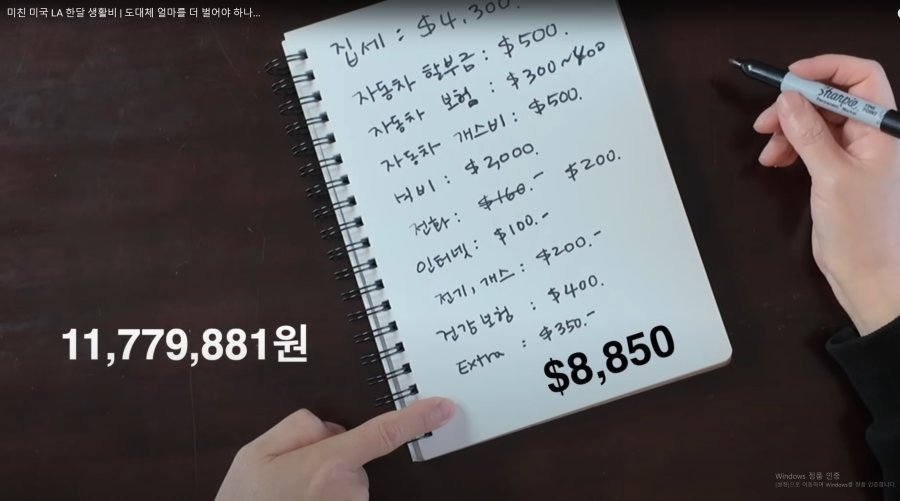 미친 미국 LA 한달 생활비 | 도대체 얼마를 더 벌어야 하나...
집세 : $4,300.
자동차 할부금 : $500.
자동차 보험 : $300~400
자동차 개스비 : $500.
식비 : $2,000.
전화 : $160.- $200.
인터넷 : $100.-
전기, 개스 : $200.-
건강보험 : $400.
Extra : $350.-
$8,850
11,779,881원
Sharpie
Windows 정품 인증
[설정]으로 이동하여 Windows를 정품 인증합니다.